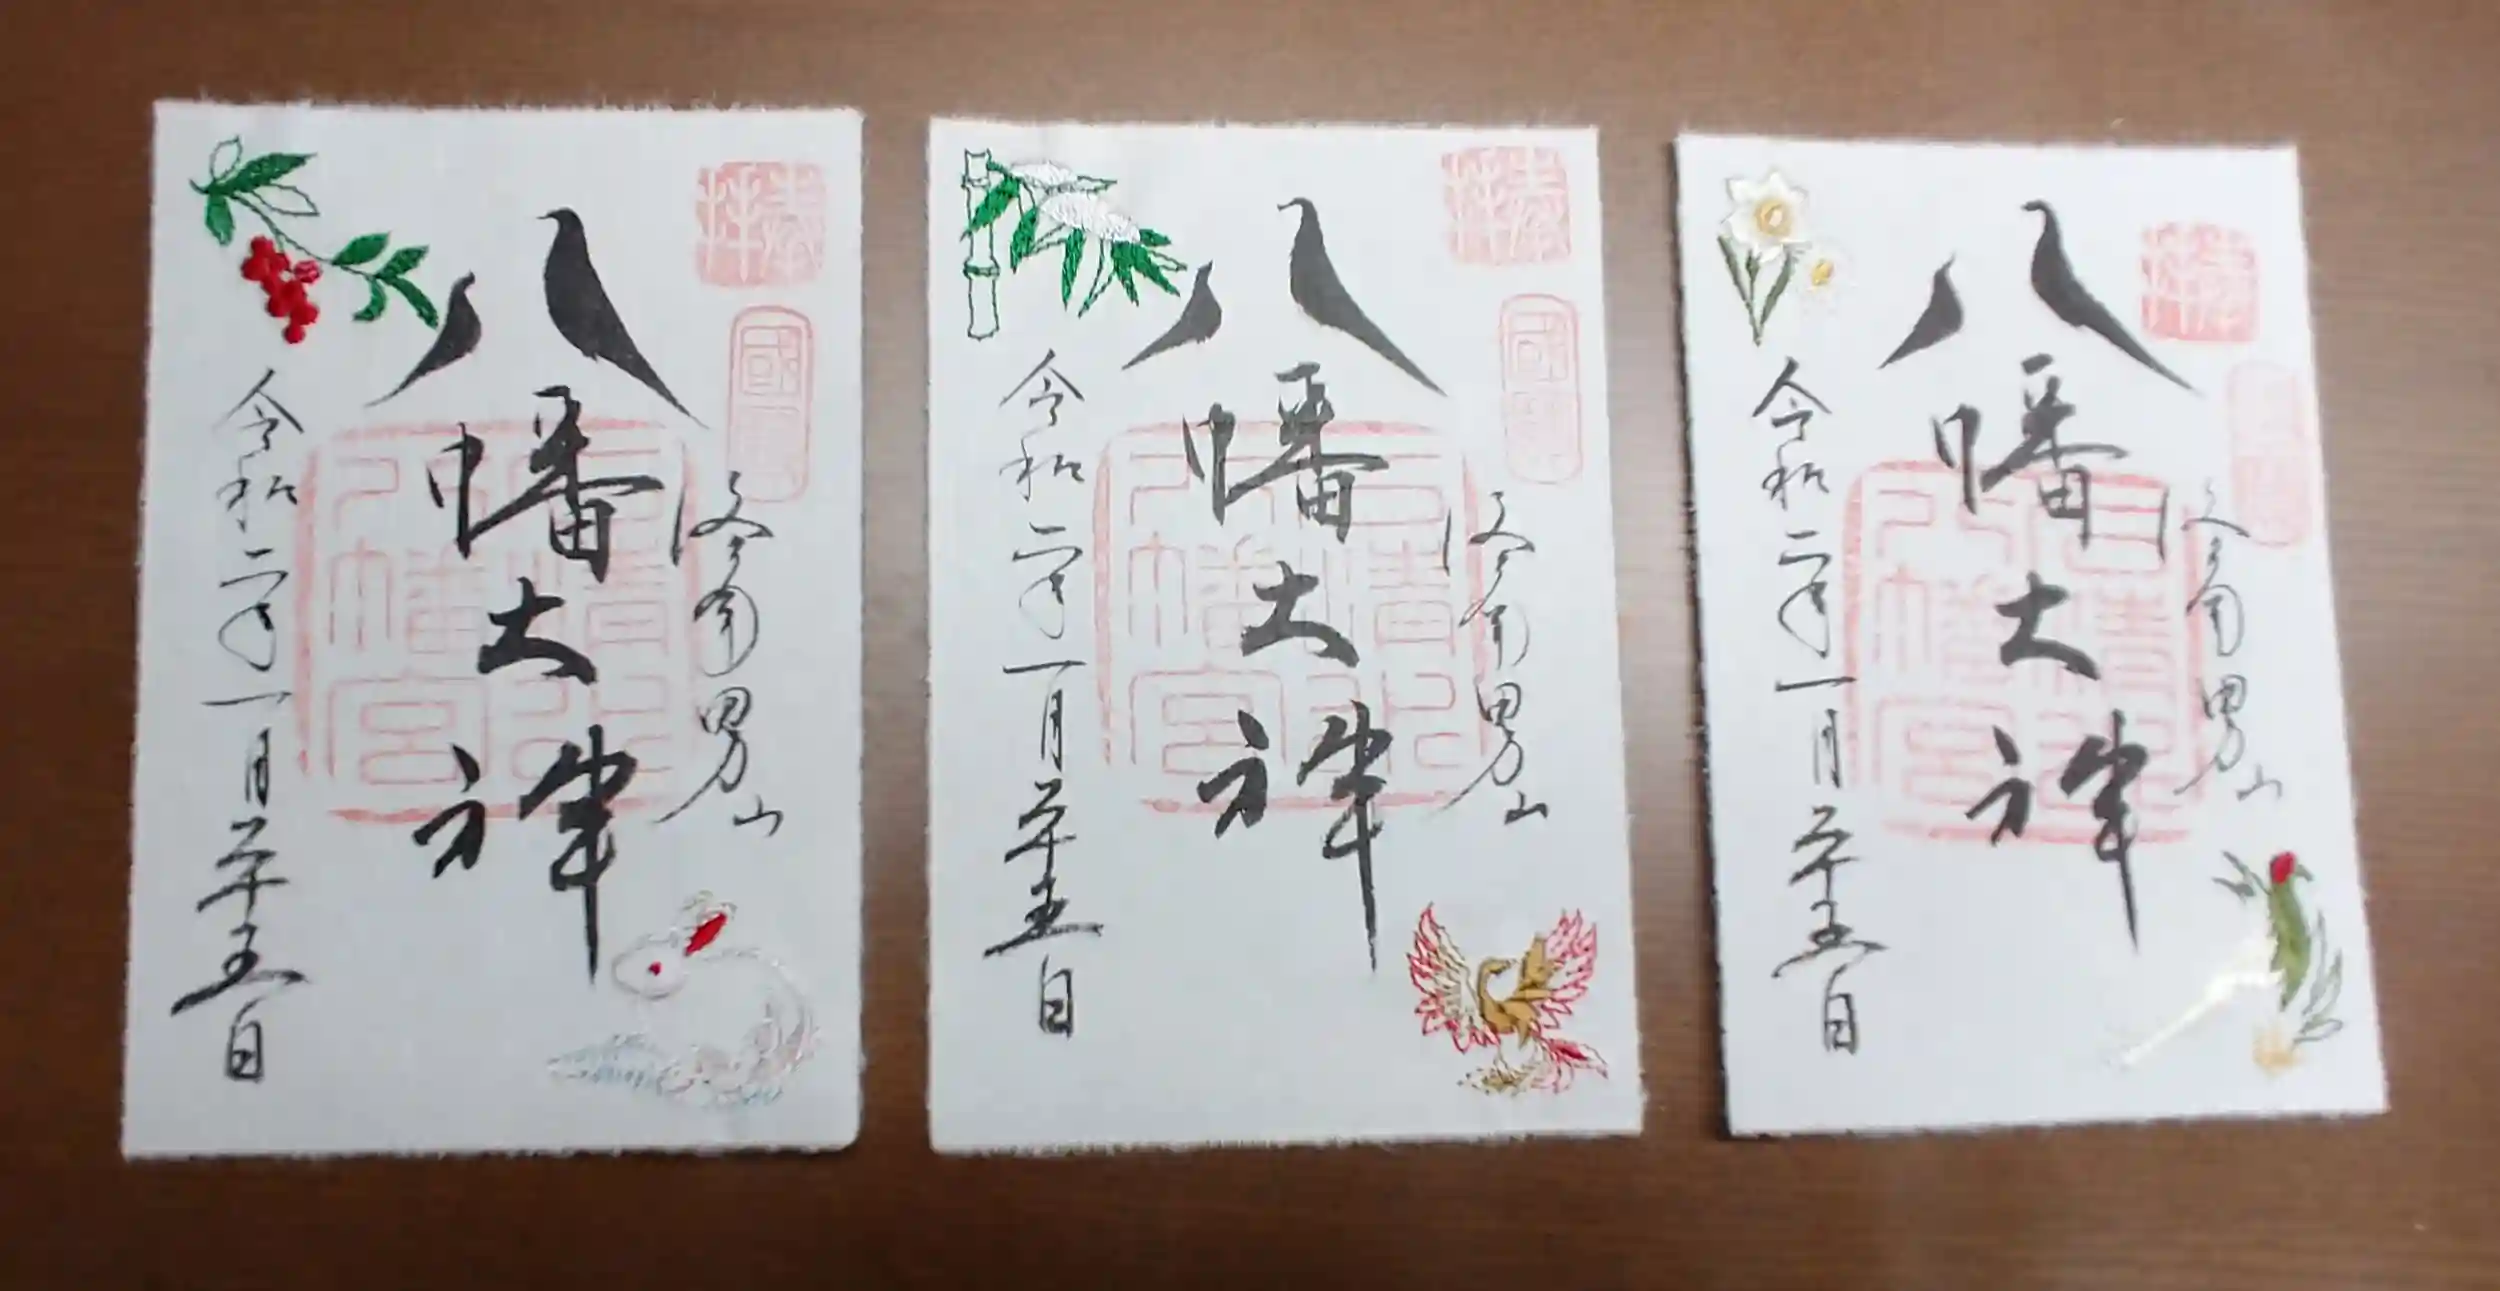 奉拝
洛南男山
八幡大神
石清水八幡宮
令和二年一月二十五日
奉拝
洛南男山
八幡大神
石清水八幡宮
令和二年一月二十五日
奉拝
洛南男山
八幡大神
石清水八幡宮
令和二年一月二十五日